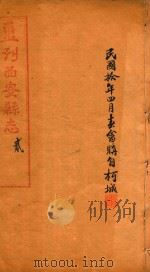 民國拾年四月購自柯城
重刊西安縣志
貳